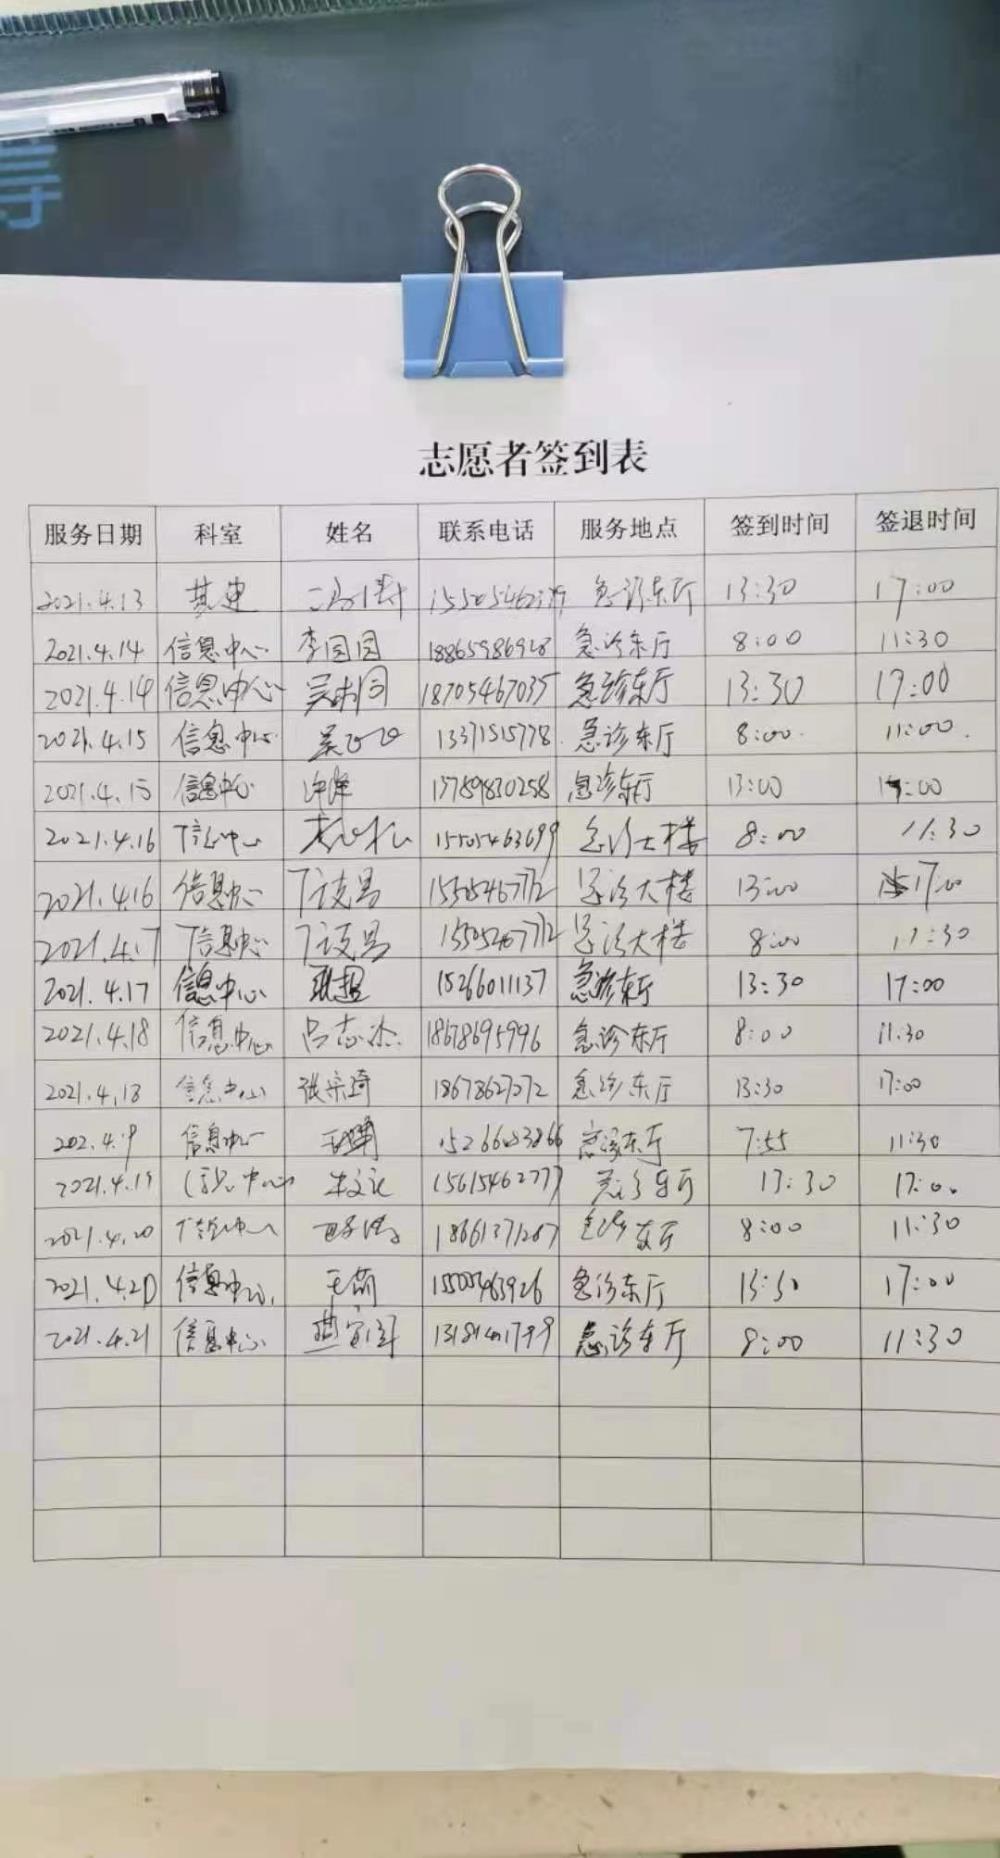 导
志愿者签到表
服务日期 科室 姓名 联系电话 服务地点 签到时间 签退时间
2021.4.13 基建 急诊东厅 13:30 17:00
2021.4.14 信息中心 李园园 18865986928 急诊东厅 8:00 11:30
2021.4.14 信息中心 18705467035 急诊东厅 13:30 17:00
2021.4.15 信息中心 吴飞飞 13371515778 急诊东厅 8:00 11:00
2021.4.15 信息中心 急诊东厅 13:00 17:00
2021.4.16 信息中心 15505463699 急诊大楼 8:00 11:30
2021.4.16 信息中心 急诊大楼 13:00 17:00
2021.4.17 信息中心 急诊大楼 8:00 11:30
2021.4.17 信息中心 15266011137 急诊东厅 13:30 17:00
2021.4.18 信息中心 吕志杰 18678695996 急诊东厅 8:00 11:30
2021.4.18 信息中心 张宗琦 18678627272 急诊东厅 13:30 17:00
信息中心 急诊东厅 7:55 11:30
2021.4.19 信息中心 15615462777 急诊东厅 13:30 17:00
2021.4.20 信息中心 急诊东厅 8:00 11:30
2021.4.20 信息中心 王萌 15505463926 急诊东厅 13:30 17:00
2021.4.21 信息中心 急诊东厅 8:00 11:30